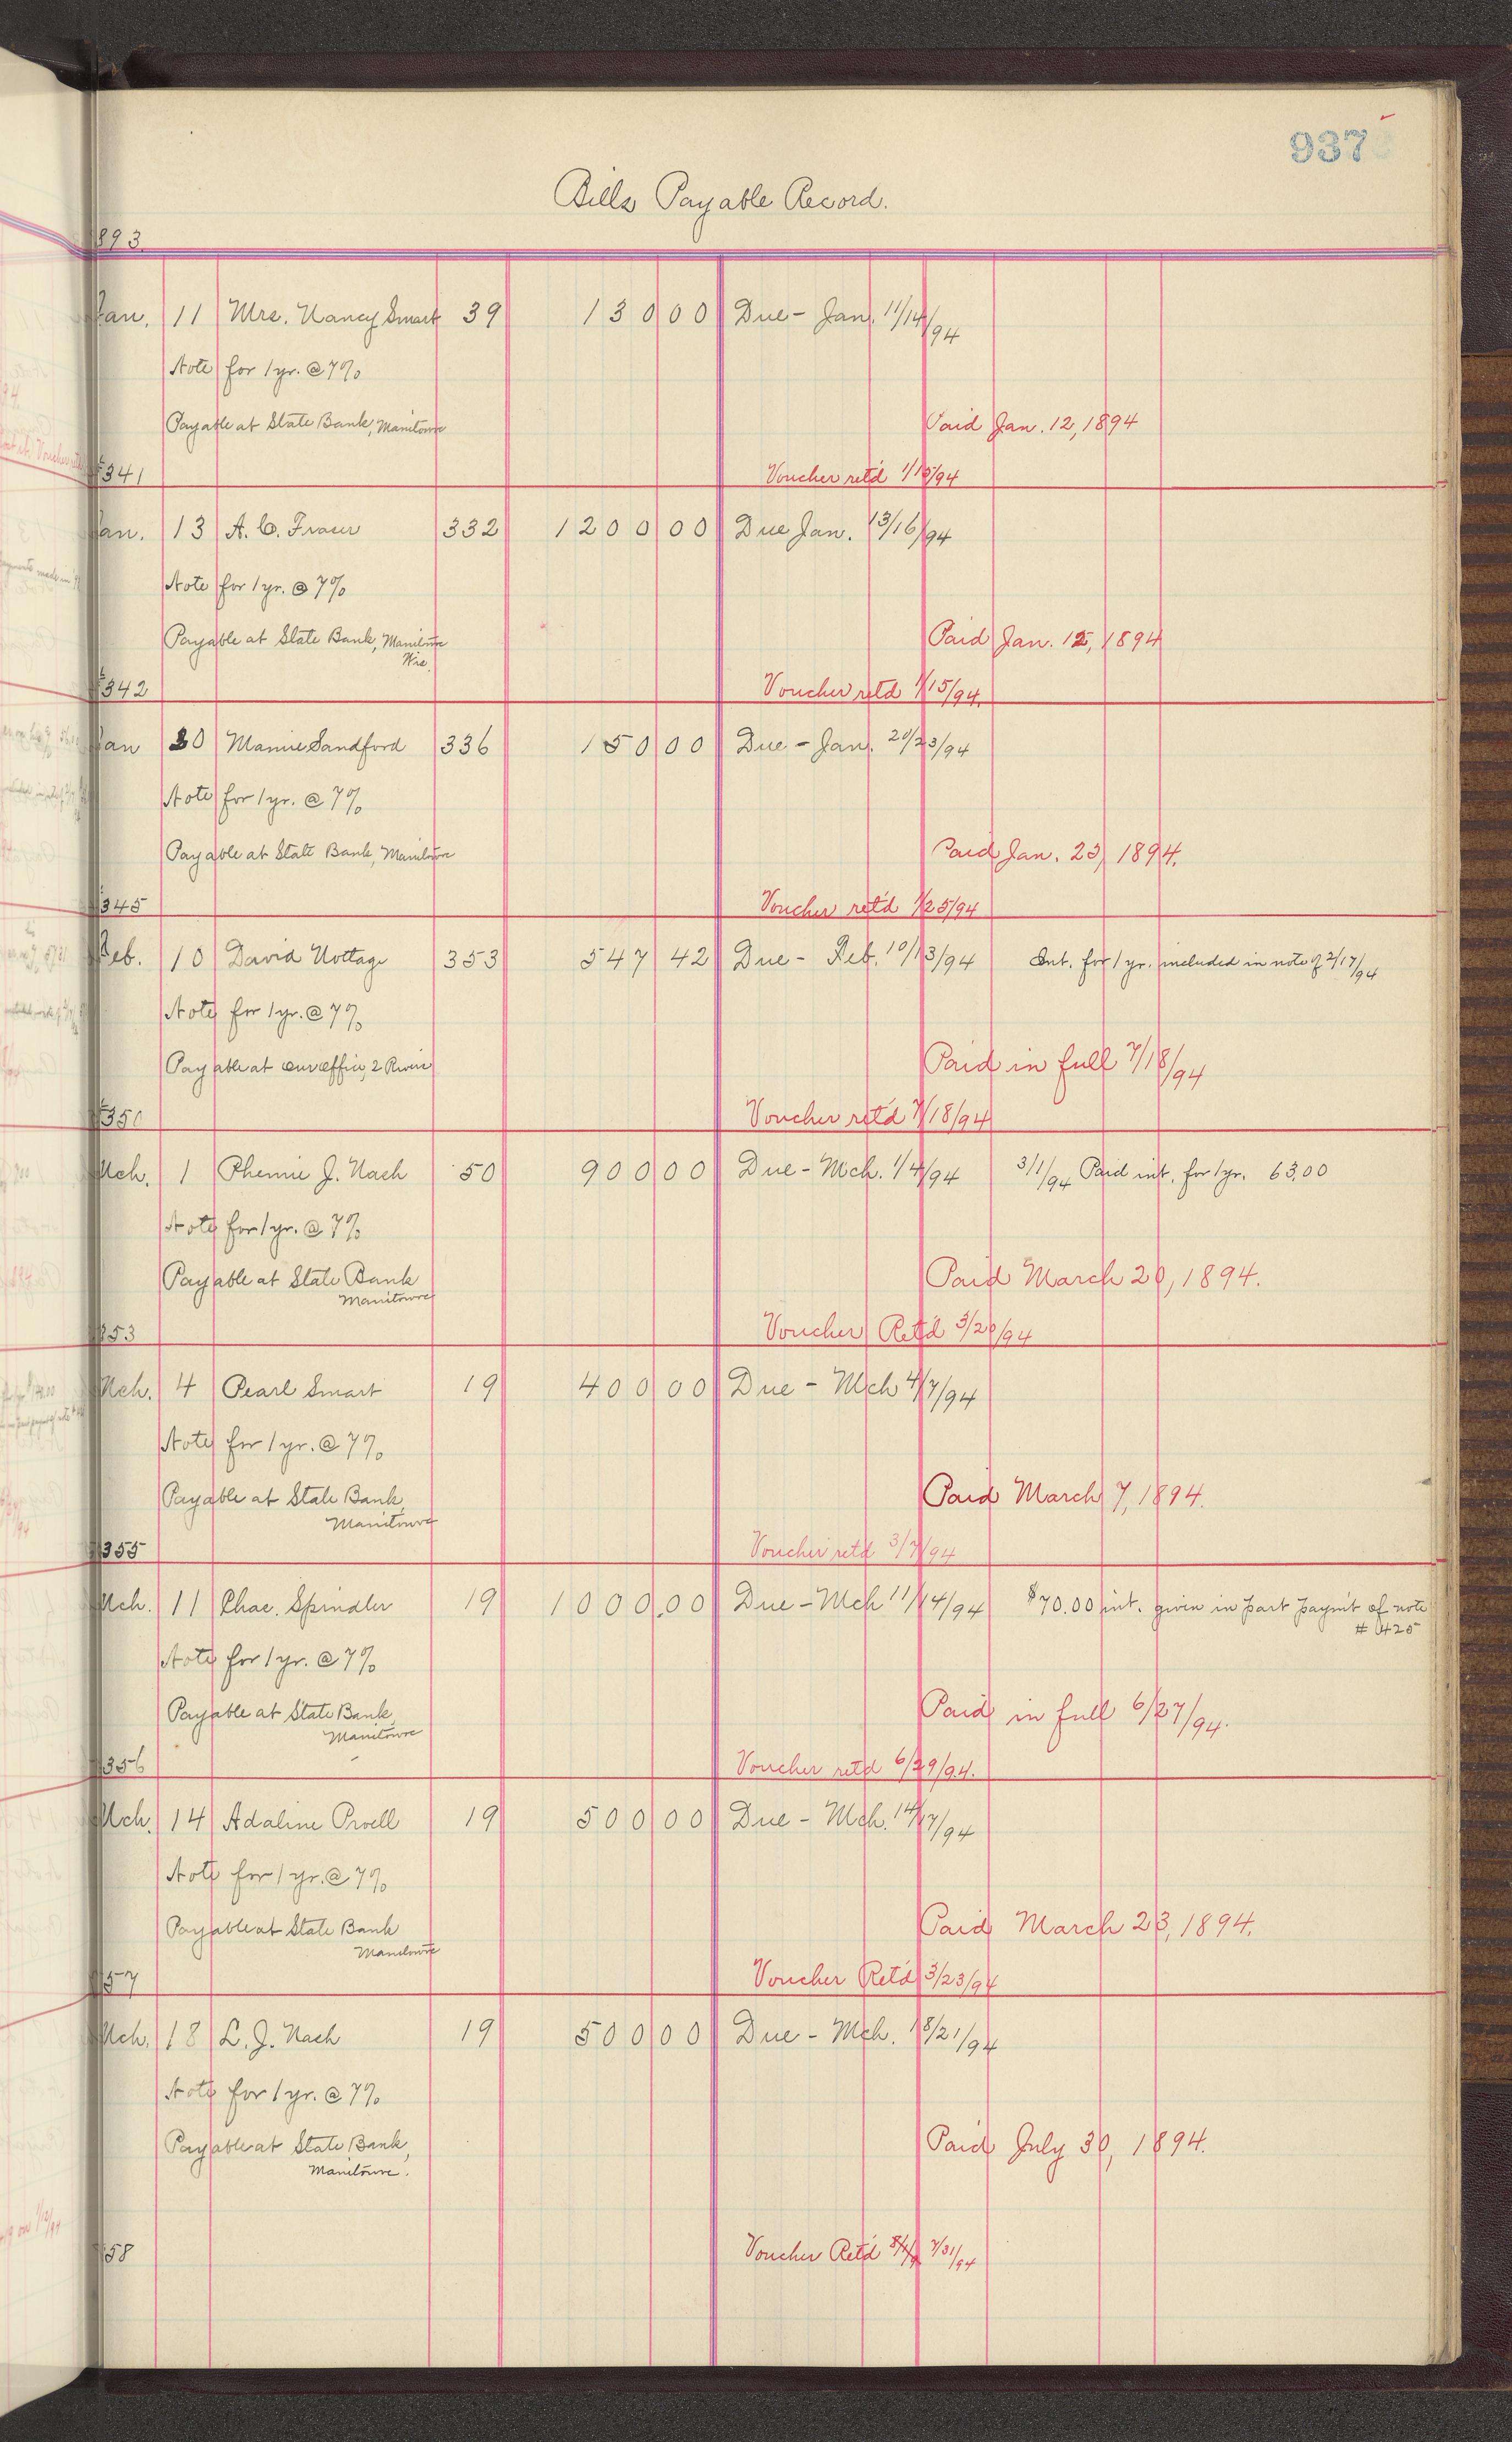 937
Bills Payable Record.
1893.
Jan. 11 Mrs. Nancy Smart 39 130 00 Due - Jan. 11/14/94
Note for 1 yr. @ 7%
Payable at State Bank, Manitowoc Paid Jan. 12, 1894
#341 Voucher ret'd 1/15/94
Jan. 13 A. C. Fraser 332 1200 00 Due Jan. 13/16/94
Note for 1 yr. @ 7%
Payable at State Bank, Manitowoc Paid Jan. 12, 1894
Wis.
#342 Voucher ret'd 1/15/94.
Jan 20 Mamie Sandford 336 150 00 Due - Jan. 20/23/94
Note for 1 yr. @ 7%
Payable at State Bank, Manitowoc Paid Jan. 23, 1894.
#345 Voucher ret'd 1/25/94
Feb. 10 David Nottage 353 547 42 Due - Feb. 10/13/94 Int. for 1 yr. included in note of 2/17/94
Note for 1 yr. @ 7%
Payable at our office, 2 Rivers Paid in full 7/18/94
#350 Voucher ret'd 7/18/94
Mch. 1 Phemie J. Nash 50 900 00 Due - Mch. 1/4/94 3/1/94 Paid int. for 1 yr. 63.00
Note for 1 yr. @ 7%
Payable at State Bank Paid March 20, 1894.
Manitowoc
353 Voucher Ret'd 3/20/94
Mch. 4 Pearl Smart 19 400 00 Due - Mch 4/7/94
Note for 1 yr. @ 7%
Payable at State Bank, Paid March 7, 1894.
Manitowoc
355 Voucher ret'd 3/7/94
Mch. 11 Chas. Spindler 19 1000.00 Due - Mch 11/14/94 $70.00 int. given in part paym't of note
# 425
Note for 1 yr. @ 7%
Payable at State Bank, Paid in full 6/27/94.
Manitowoc
356 Voucher ret'd 6/29/94.
Mch. 14 Adaline Prvell 19 500 00 Due - Mch. 14/17/94
Note for 1 yr. @ 7%
Payable at State Bank Paid March 23, 1894.
Manitowoc
57 Voucher Ret'd 3/23/94
Mch. 18 L. J. Nash 19 500 00 Due - Mch. 18/21/94
Note for 1 yr. @ 7%
Payable at State Bank, Paid July 30, 1894.
Manitowoc.
58 Voucher Ret'd 7/31/94